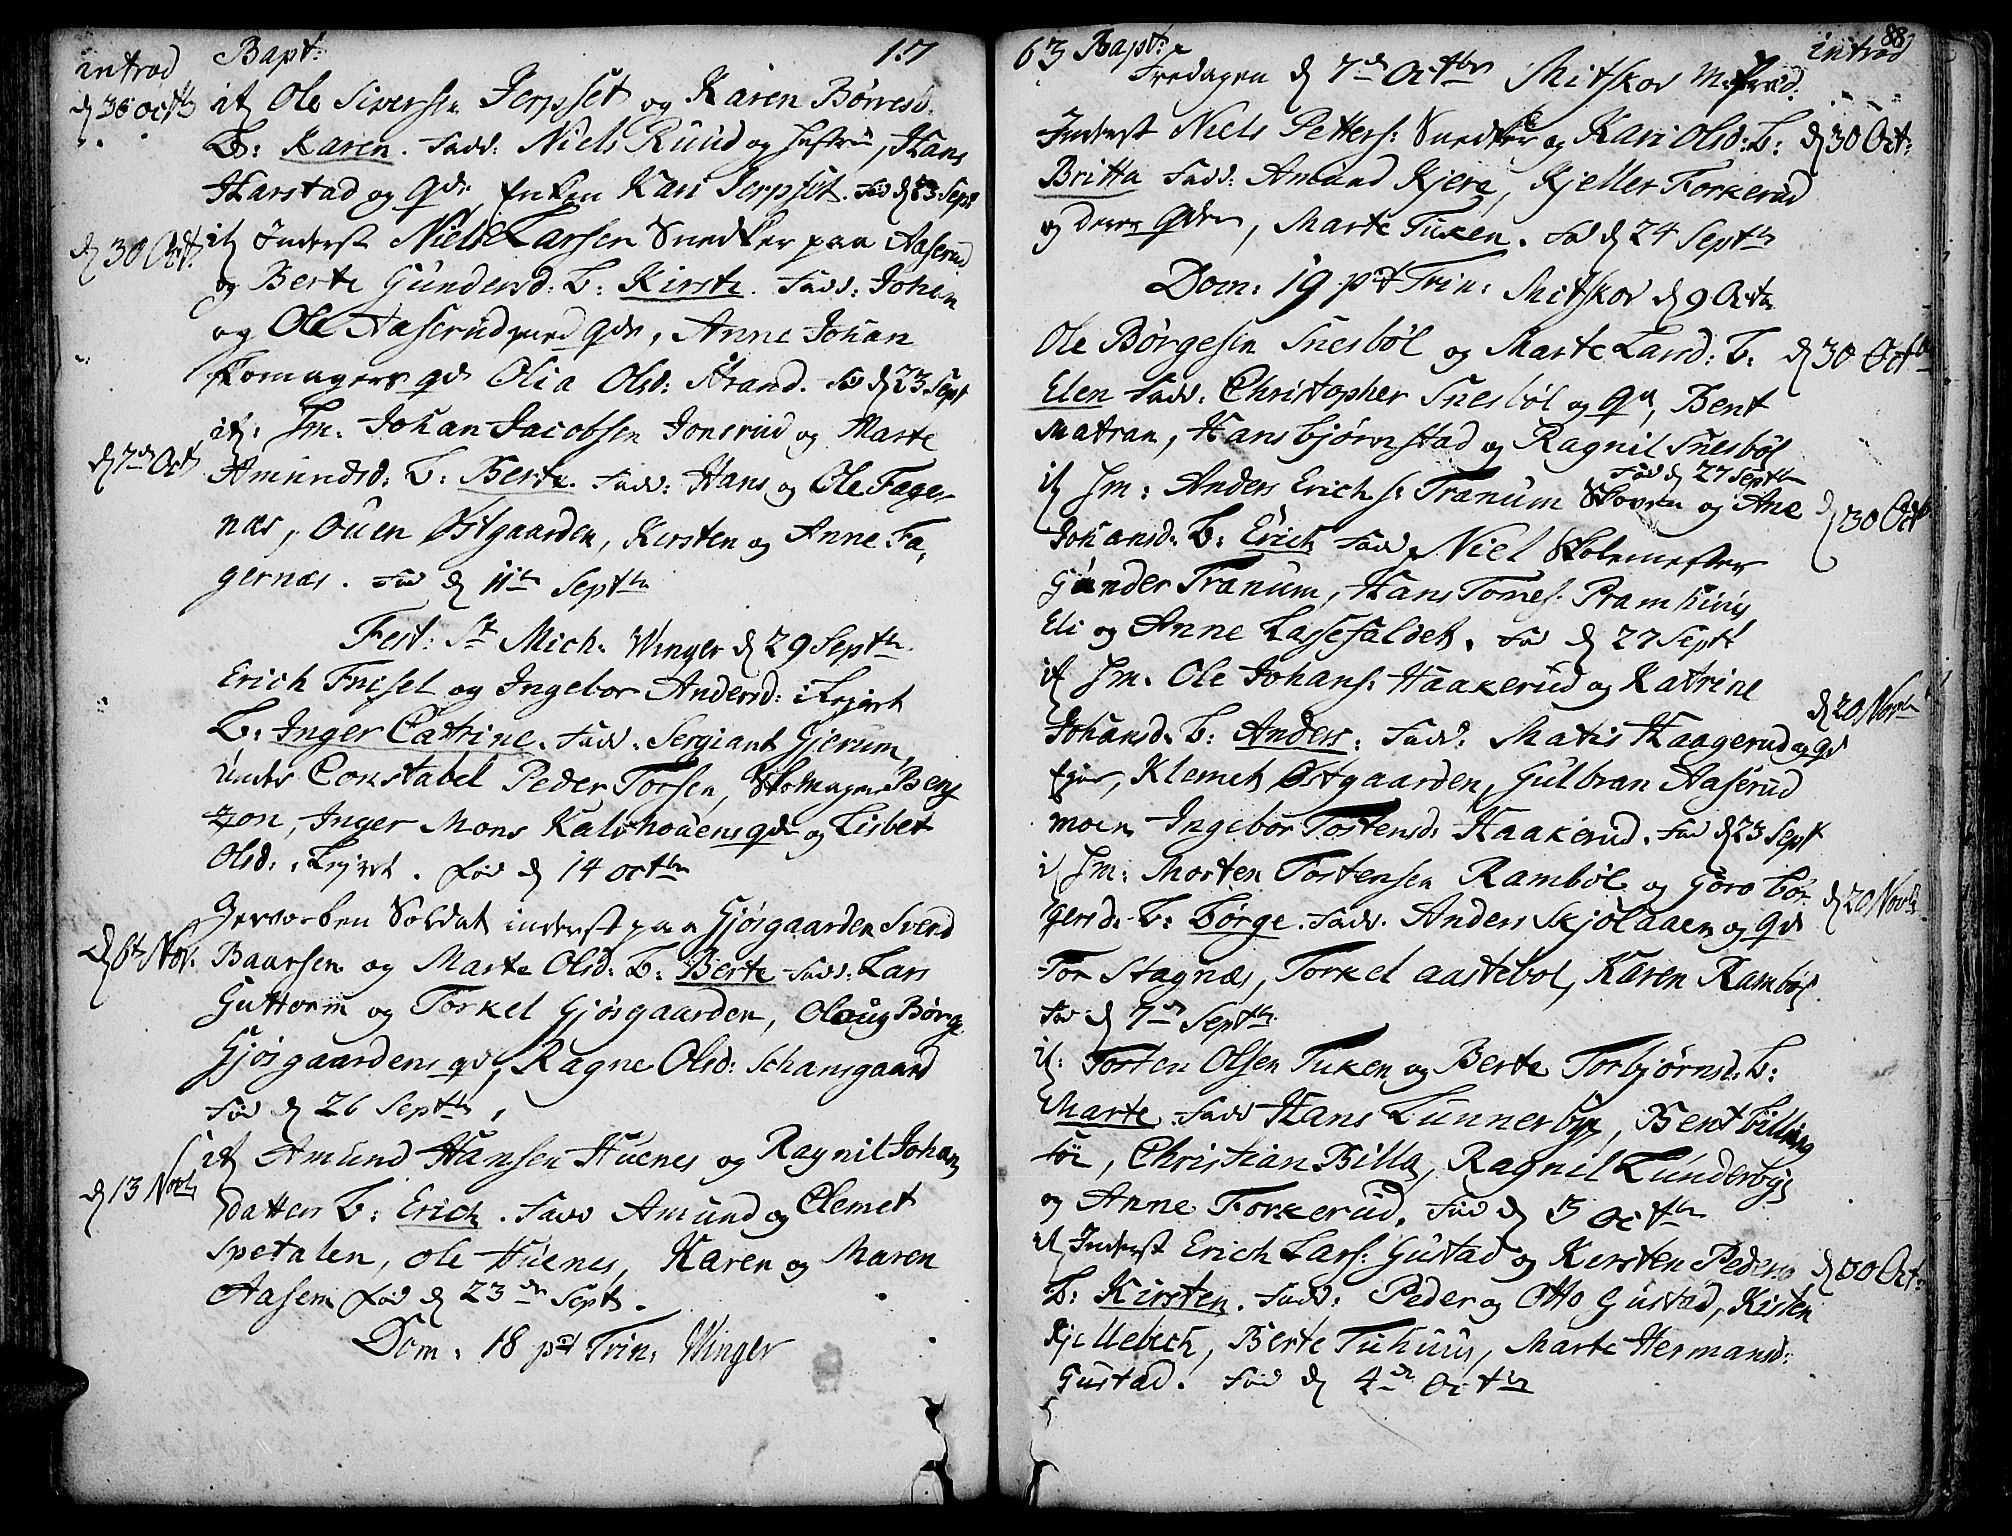 introd Bapt: 17
d 30 Octb it Ole Siversen Jerpset og Karen Børresd:
B: Karen. Fadd: Niels Ruud og Hustrue, Hans
Harstad og qde, Enken Kari Jerpset. Fød d 23 Sept
d 30 Oct: it Inderst Niels Larsen Snedker paa Aaserud
og Berte Gundersd: B: Kirste. Fadd: Johan
og Ole Aaserud med qde, Anne Johan
Skomagers qde Olia Olsd: Strand. Fød d 23 Sept
d 7de Octb it: Jm. Johan Jacobsen Jonsrud og Marte
Amundsd: B: Berte. Fadd: Hans og Ole Fager-
næs, Ouen Østgaarden, Kirsten og Anne Fa,
gernæs. Fød d 11te Septbr
Fest: St Mich: Winger d 29 Septbr
Erich Frisel og Ingebor Andersd: i Lejret
B: Inger Catrine. Fadd. Sergiant Gjerum,
Under Constabel Peder Torsen, Skomager Beng
zon, Inger Mons Kalvhouens qde og Lisbet
Olsd: i Lejret. fød d 14 octbr
d 6te Nov. Gevorben Soldat inderst paa Gjøsgaarden Svend
Baarsen og Marte Olsd: B: Berte Fadd: Lars
Guttorm og Torkel Gjøsgaarden, Oloug Børge
Gjøsgaardens qde, Ragne Olsd: Schansgaard
Fød d 26 Septbr.
d 13 Novb it Amund Hansen Huenes og Ragnil Johans
datter B: Erich. Fadd Amund og Clemet
Spetalen, Ole Huenes, Karen og Maren
Aasen fød d 23de Septb.
Dom. 18 pt Trin: Winger
63 Bapt: introd 88
Fredagen d 7de Octbr Mitskov
Inderst Niels Petters: Snedker og Kari Olsd: B: d 30 Oct:
Britta Fadd: Amund Kjera, Kjeller Forkerud
og deres qder, Marte Tuxen. Fød d 24 Septbr
Dom: 19 pt Trin: Mitskov d 9 Octbr
Ole Børgesen Snesbøl og Marte Larsd: B: d 30 Octb
Elen Fadd: Christopher Snesbøl og qde, Bent
Matran, Hans bjørnstad og Ragnil Snesbøl
Fød d 27 Septbr
it Jm: Anders Erichs: Tranum Skoven og Ane d 30 Octb
Johansd: B: Erich Fadd Niel Skolemester
Gunder Tranum, Hans Torres: Pramhuus
Eli og Anne Lassefaldet. Fød d 27 Sept
it Jm. Ole Johans: Haakerud og Katrine d 20 Novbr
Johansd: B: Anders: Fadd: Matis Haagerud og qde
Klemet Østgaarden, Gulbran Aaserud
moen Ingebor Tostensd: Haakerud. Fød d 23 Sept
it Jm: Morten Tortensen Rambøl og Goro Bør d 20 Novb
gersd: B: Børge. Fadd. Anders Skjølaaen og qde
Tor Stagnæs, Torkel Aastebøl, Karen Rambøl
Fød d 7de Septb
it: Torten Olsen Tuxen og Berte Torbjørnsd: B:
Marte. Fadd Hans Lunnerbye, Bent Billing
søe, Christian Billa, Ragnil Lunderbye
og Anne Forkerud. Fød d 5 Octbr
it Inderst Erich Lars: Gustad og Kirsten Peders d 30 Oct:
B: Kirsten. Fadd: Peder og Otto Gustad, Kisten
Kjellebech, Berte Tuhuus, Marte Hermansd:
Gustad. Fød d 4de Octbr